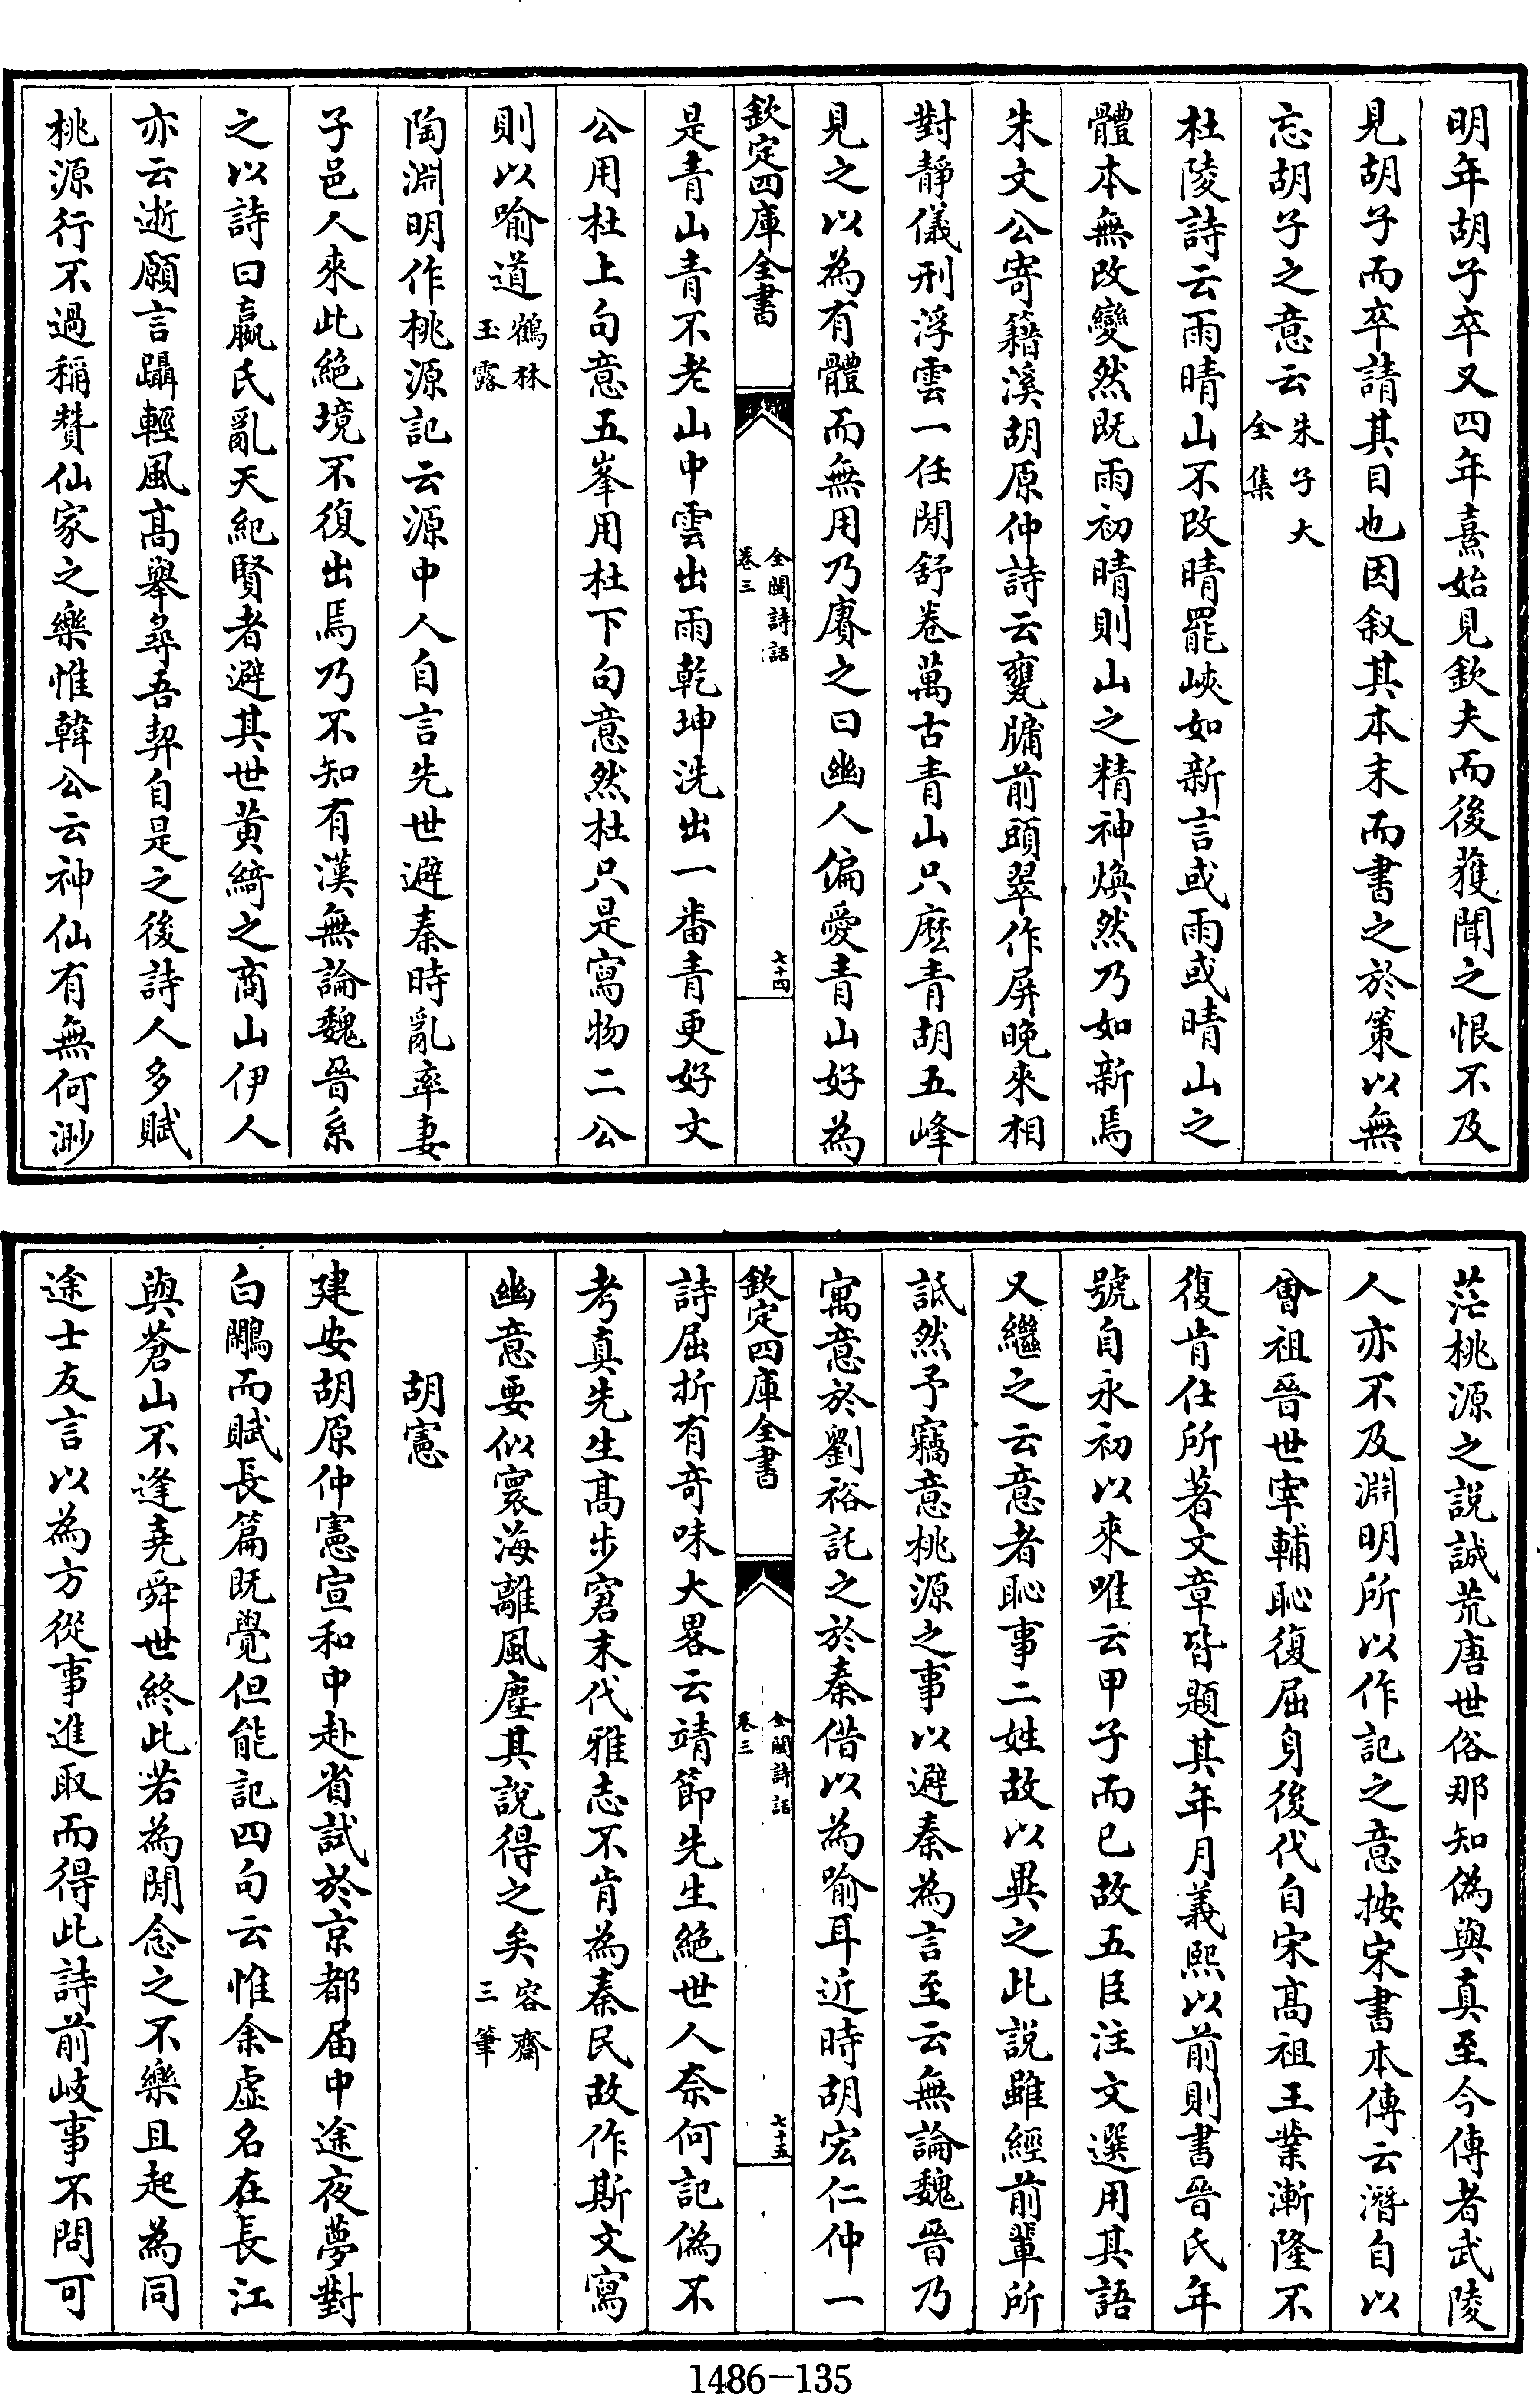 明年胡子卒又四年熹始見欽夫而後獲聞之恨不及
見胡子而卒請其目也因叙其本末而書之於策以無
忘胡子之意云朱子大
全集
杜陵詩云雨晴山不改晴罷峽如新言或雨或晴山之
體本無改變然既雨初晴則山之精神煥然乃如新焉
朱文公寄籍溪胡原仲詩云甕牖前頭翠作屏晚來相
對靜儀刑浮雲一任閒舒卷萬古青山只麽青胡五峰
見之以為有體而無用乃賡之曰幽人偏愛青山好為
欽定四庫全書
全閩詩話
卷三
七十四
是青山青不老山中雲出雨乾坤洗出一番青更好文
公用杜上句意五峯用杜下句意然杜只是寫物二公
則以喻道鶴林
玉露
陶淵明作桃源記云源中人自言先世避秦時亂率妻
子邑人來此絶境不復出焉乃不知有漢無論魏晉系
之以詩曰嬴氏亂天紀賢者避其世黄綺之商山伊人
亦云逝願言躡輕風高舉尋吾契自是之後詩人多賦
桃源行不過稱贊仙家之樂惟韓公云神仙有無何渺
茫桃源之説誠荒唐世俗那知偽與真至今傳者武陵
人亦不及淵明所以作記之意按宋書本傳云潛自以
曾祖晉世宰輔恥復屈身後代自宋高祖王業漸隆不
復肯仕所著文章皆題其年月義熙以前則書晉氏年
號自永初以來唯云甲子而已故五臣注文選用其語
又繼之云意者恥事二姓故以異之此説雖經前輩所
詆然予竊意桃源之事以避秦為言至云無論魏晉乃
寓意於劉裕託之於秦借以為喻耳近時胡宏仁仲一
欽定四庫全書
全閩詩話
卷三
七十五
詩屈折有奇味大畧云靖節先生絶世人奈何記偽不
考真先生高步窘末代雅志不肯為秦民故作斯文寫
幽意要似寰海離風塵其説得之矣容齋
三筆
胡憲
建安胡原仲憲宣和中赴省試於京都届中途夜夢對
白鷴而賦長篇既覺但能記四句云惟余虚名在長江
與蒼山不逢堯舜世終此若為閒念之不樂且起為同
途士友言以為方從事進取而得此詩前岐事不問可
1486-135